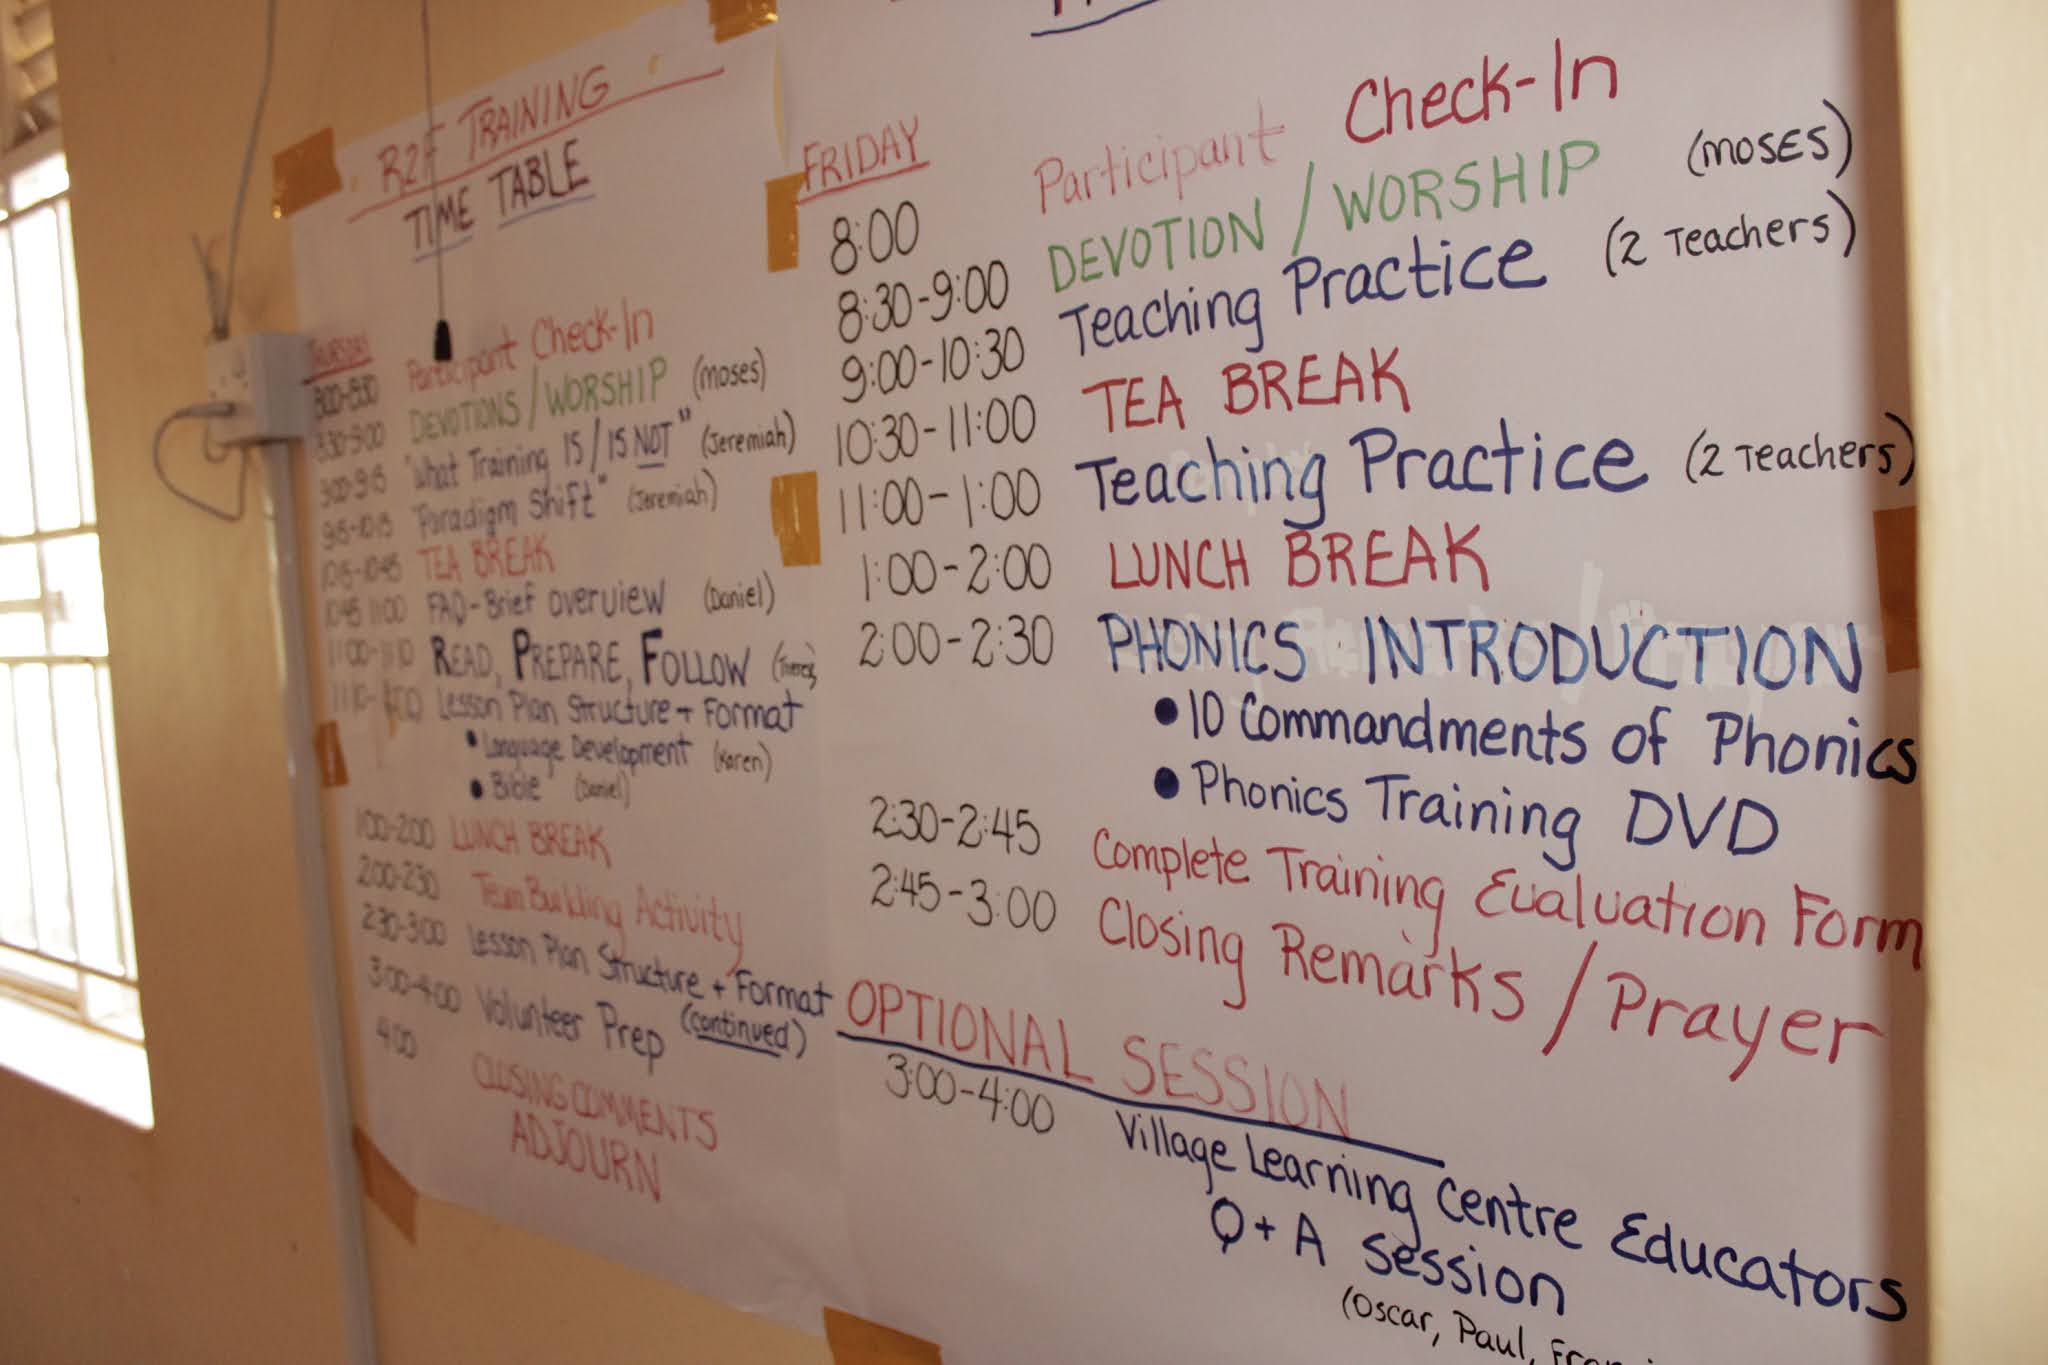 R2F TRAINING
TIME TABLE
THURSDAY
8:00-8:30 Participant Check-In
8:30-9:00 DEVOTIONS / WORSHIP (moses)
9:00-9:15 "What Training IS / IS NOT" (Jeremiah)
9:15-10:15 "Paradigm Shift" (Jeremiah)
10:15-10:45 TEA BREAK
10:45 11:00 FAQ-Brief overview (Daniel)
11:00-11:10 READ, PREPARE, FOLLOW
11:10- Lesson Plan Structure + Format
• Language Development (Karen)
• Bible (Daniel)
1:00-2:00 LUNCH BREAK
2:00-2:30 Team Building Activity
2:30-3:00 Lesson Plan Structure + Format
(continued)
3:00-4:00 Volunteer Prep
4:00 CLOSING COMMENTS
ADJOURN
FRIDAY
8:00 Participant Check-In
8:30-9:00 DEVOTION / WORSHIP (moses)
9:00-10:30 Teaching Practice (2 Teachers)
10:30-11:00 TEA BREAK
11:00-1:00 Teaching Practice (2 Teachers)
1:00-2:00 LUNCH BREAK
2:00-2:30 PHONICS INTRODUCTION
• 10 Commandments of Phonics
• Phonics Training DVD
2:30-2:45 Complete Training Evaluation Form
2:45-3:00 Closing Remarks / Prayer
OPTIONAL SESSION
3:00-4:00 Village Learning Centre Educators
Q + A Session
(Oscar, Paul,